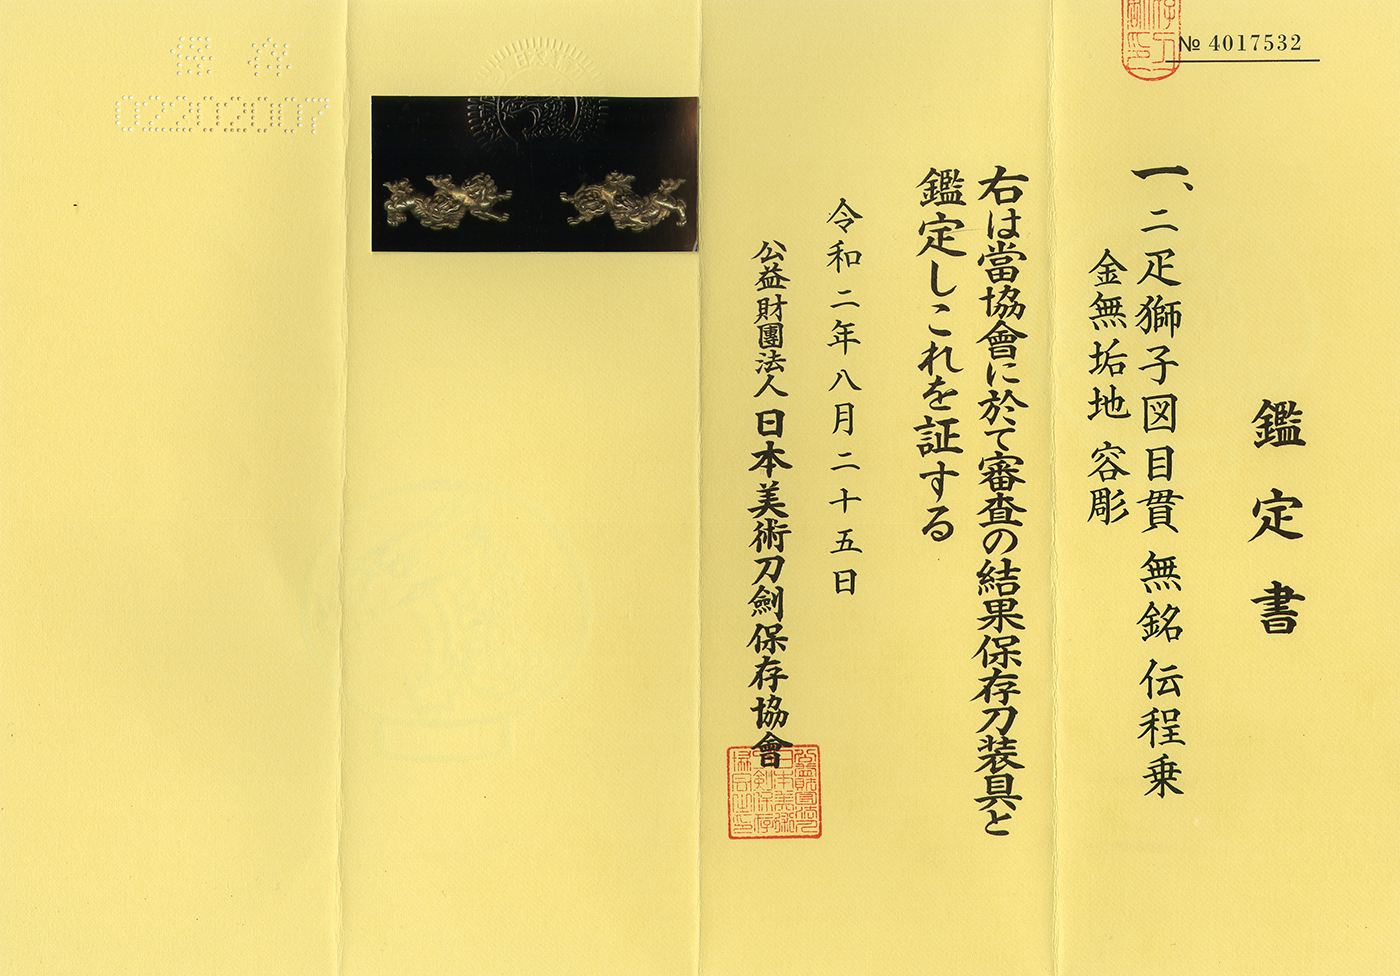 № 4017532
鑑定書
一、二疋獅子図目貫 無銘 伝程乗
金無垢地 容彫
右は當協會に於て審査の結果保存刀装具と
鑑定しこれを証する
令和二年八月二十五日
公益財團法人 日本美術刀劍保存協會
保存
02202007